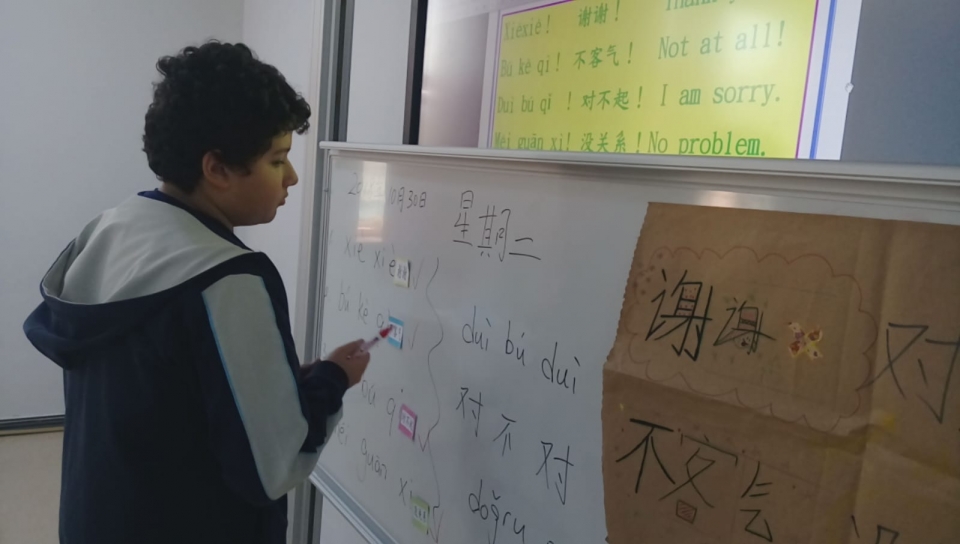 Xièxiè！ 谢谢！
Bú kè qì！ 不客气！ Not at all!
Duì bù qǐ ！对不起！ I am sorry.
Méi guān xi! 没关系！No problem.
10月30日
星期二
xiè xiè
bú kè
guān xi
duì bú duì
对不对
doğru
谢谢
对
不